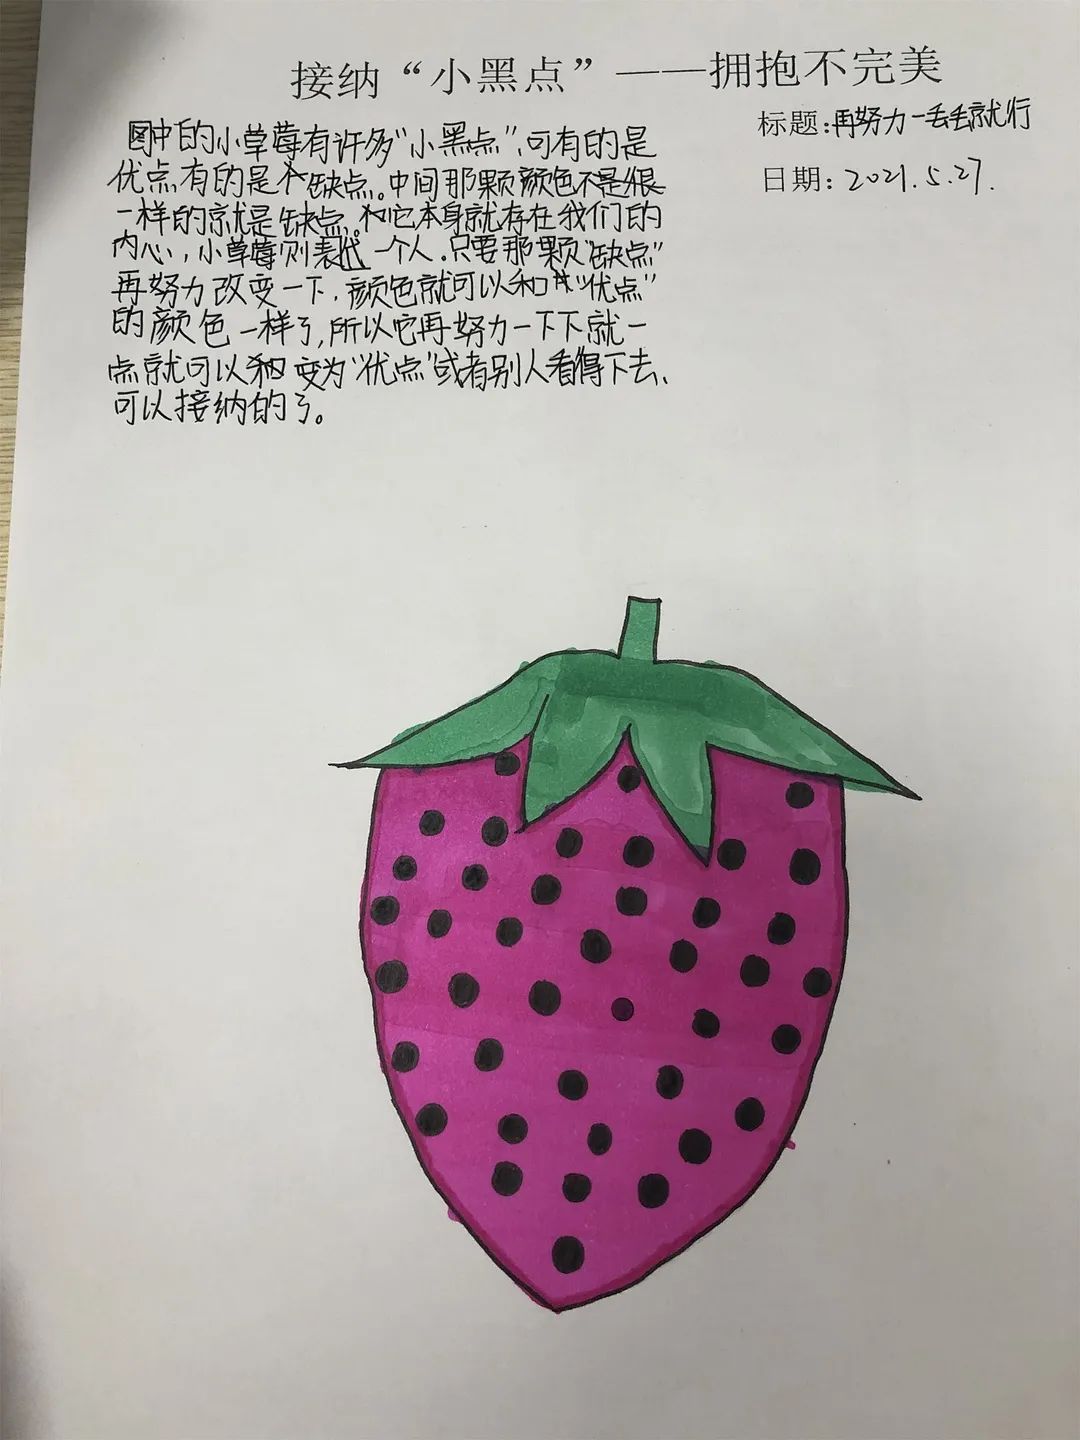 接纳“小黑点”——拥抱不完美
标题:再努力一丢丢就行
日期:2021.5.27.
图中的小草莓有许多“小黑点”,可有的是
优点,有的是个缺点。中间那颗颜色不是很
一样的就是缺点。和它本身就存在我们的
内心,小草莓则表达一个人.只要那颗“缺点”
再努力改变一下,颜色就可以和其“优点”
的颜色一样了,所以它再努力一下下就一
点就可以和变为“优点”或者别人看得下去、
可以接纳的了。